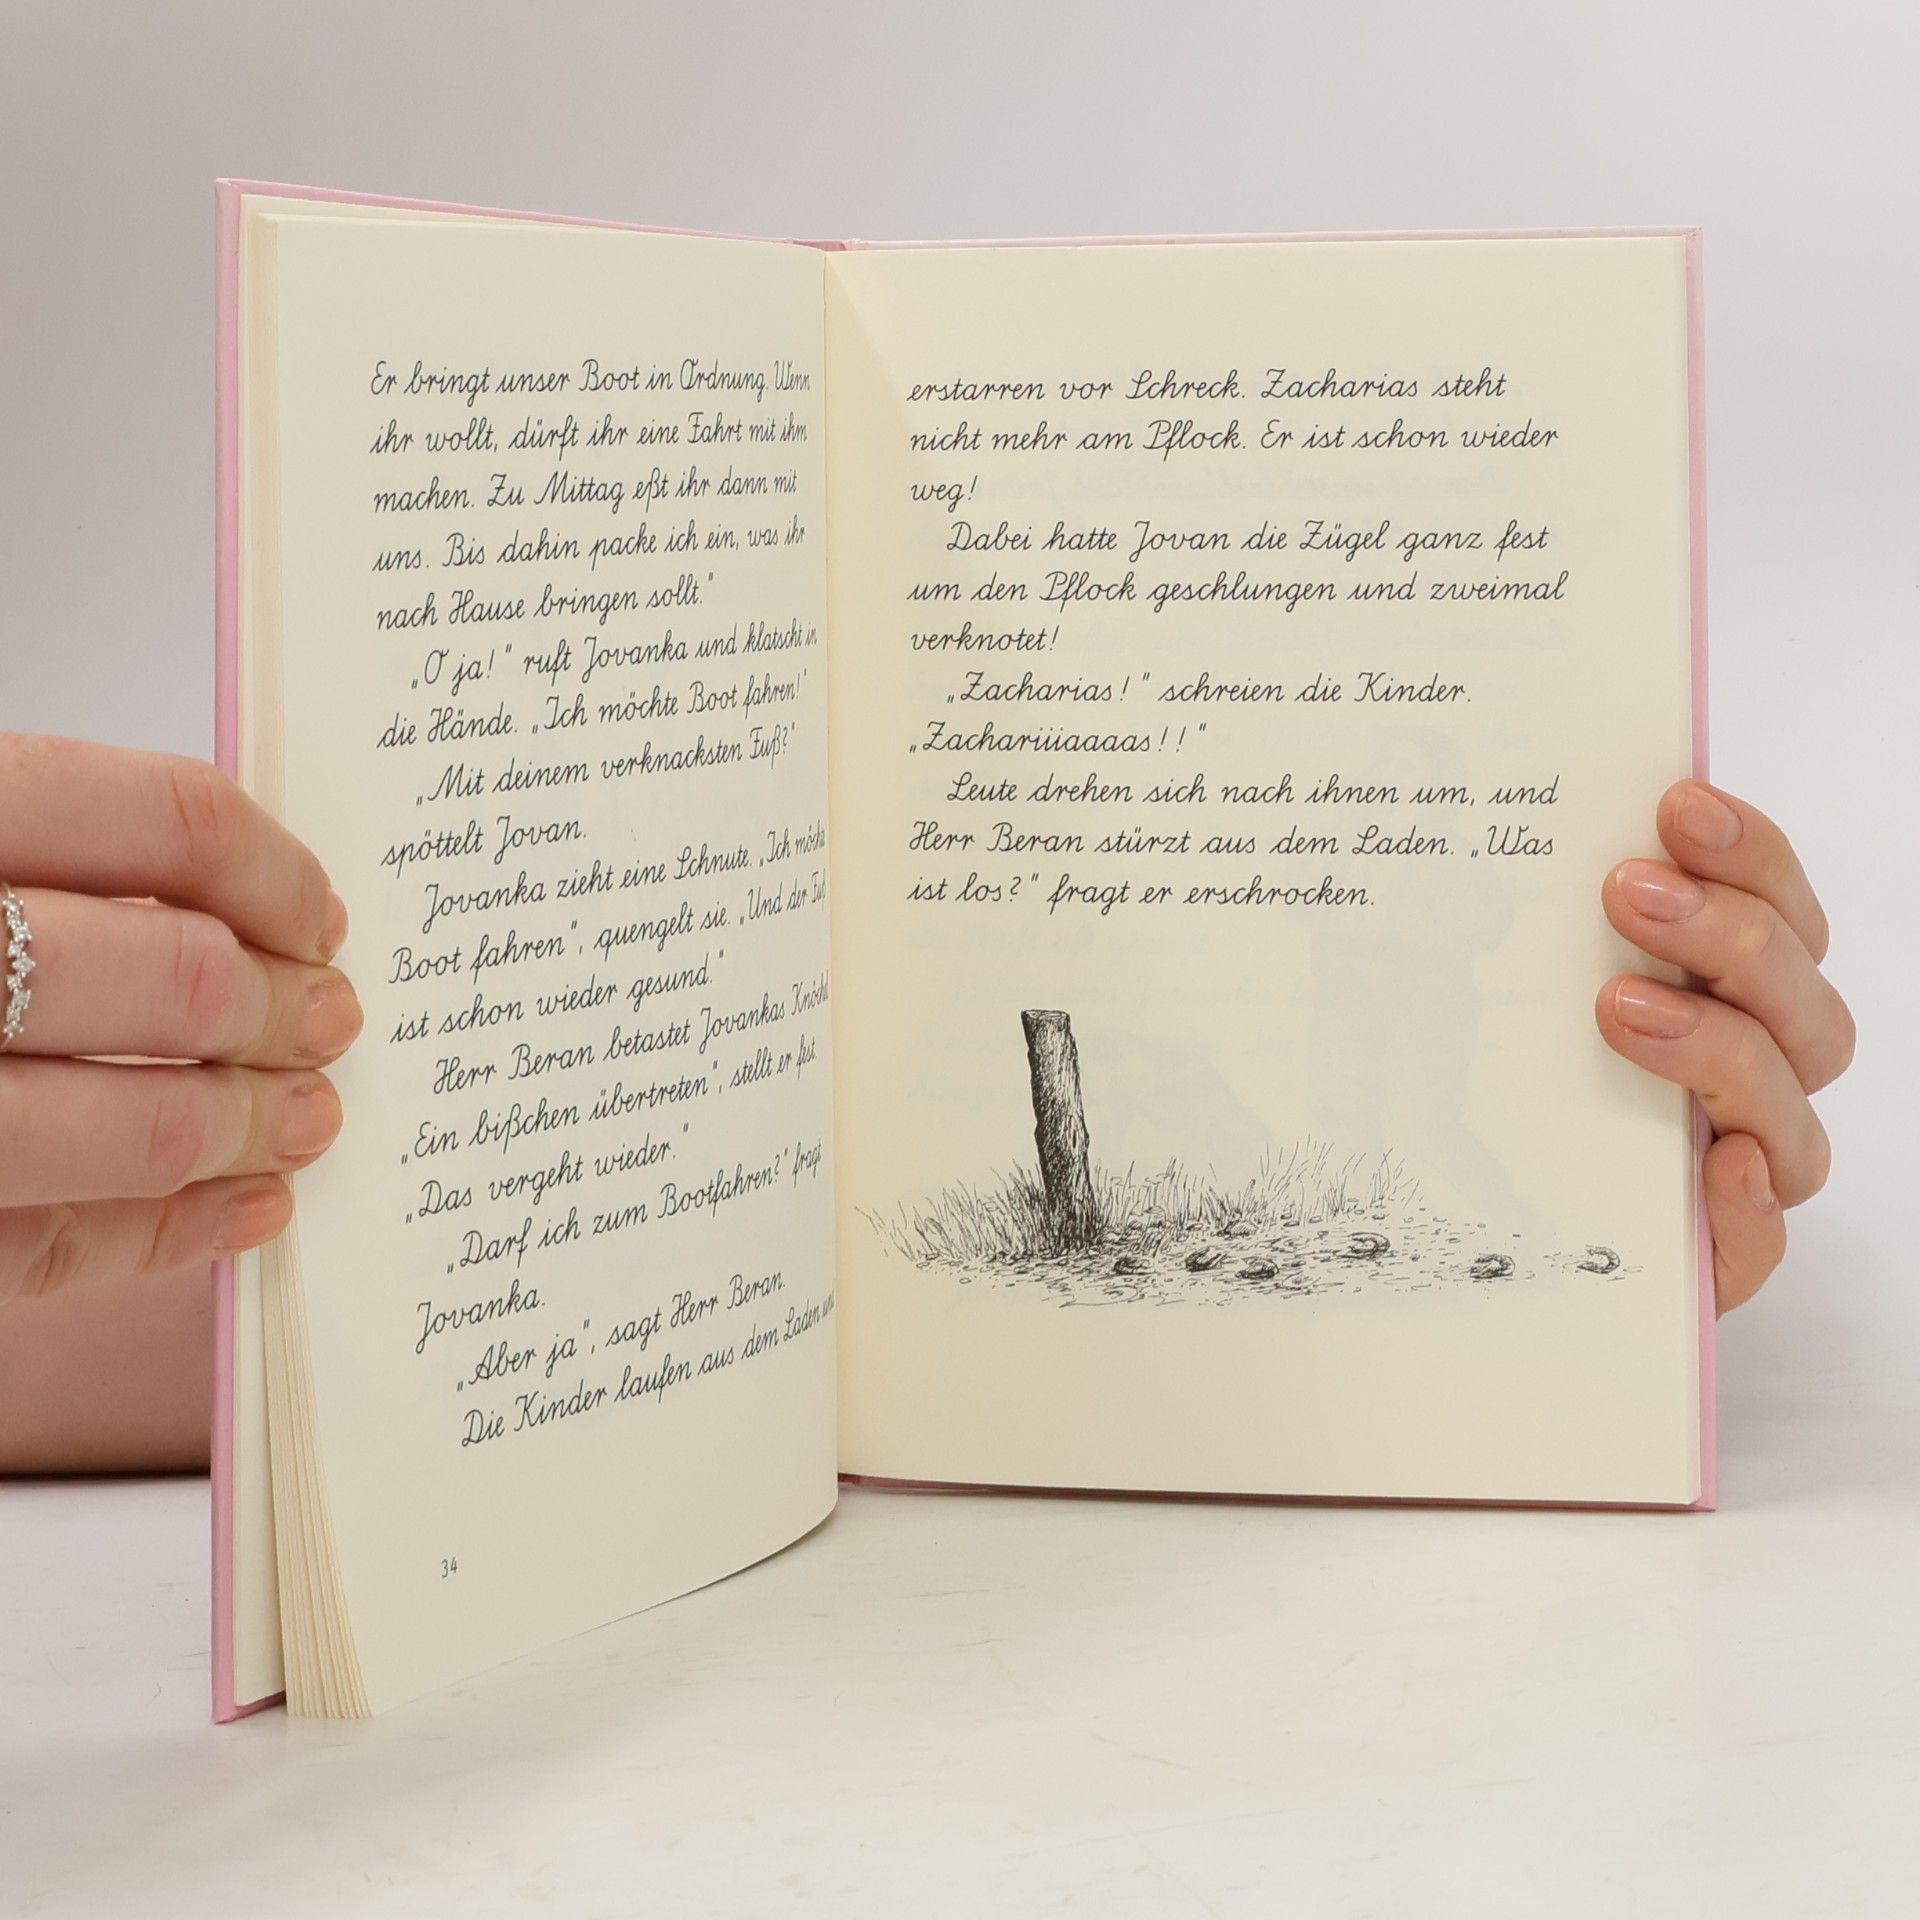 Er bringt unser Boot in Ordnung. Wenn
ihr wollt, dürft ihr eine Fahrt mit ihm
machen. Zu Mittag eßt ihr dann mit
uns. Bis dahin packe ich ein, was ihr
nach Hause bringen sollt."
„O ja!" ruft Jovanka und klatscht in
die Hände. „Ich möchte Boot fahren!"
„Mit deinem verknacksten Fuß?"
spöttelt Jovan.
Jovanka zieht eine Schnute. „Ich
Boot fahren", quengelt sie. „Und der
ist schon wieder gesund."
Herr Beran betastet Jovankas
„Ein bißchen übertreten", stellt er fest.
„Das vergeht wieder."
„Darf ich zum Bootfahren?" fragt
Jovanka.
„Aber ja", sagt Herr Beran.
Die Kinder laufen aus dem Laden und
34
erstarren vor Schreck. Zacharias steht
nicht mehr am Pflock. Er ist schon wieder
weg!
Dabei hatte Jovan die Zügel ganz fest
um den Pflock geschlungen und zweimal
verknotet!
„Zacharias!" schreien die Kinder.
„Zachariiiaaaas!!"
Leute drehen sich nach ihnen um, und
Herr Beran stürzt aus dem Laden. „Was
ist los?" fragt er erschrocken.